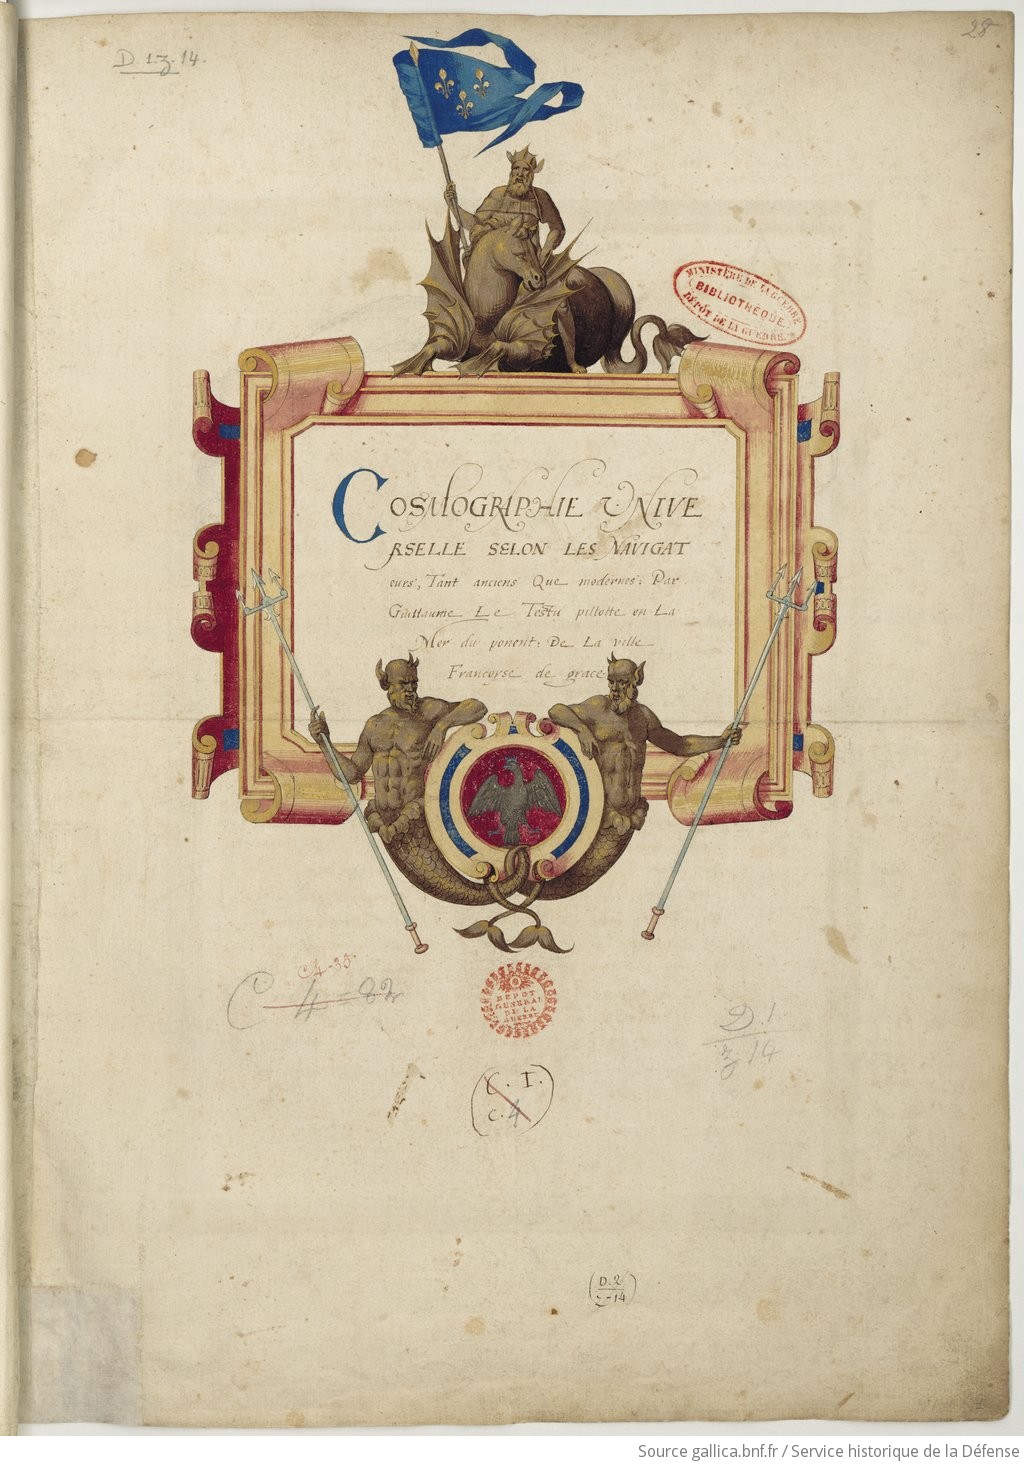 D. 1. z. 14.
28
MINISTÈRE DE LA GUERRE
BIBLIOTHÈQUE
DÉPÔT DE LA GUERRE
COSMOGRAPHIE UNIVE
RSELLE SELON LES NAVIGAT
eurs, Tant anciens Que modernes. Par
Guillaume Le Testu pillotte en La
Mer du ponent: De La ville
Francoyse de grace
C 4-35
C 4=82
DEPOT
GENERAL
DE LA
GUERRE
D. 1
z 14
C. I.
c. 4
D. 2
z-14
Source gallica.bnf.fr / Service historique de la Défense